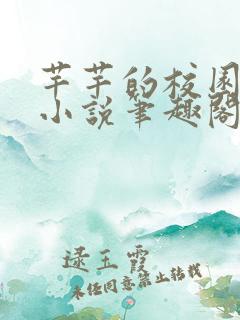 芊芊的校园
小说笔趣阁
逯玉霞
未经同意禁止转载